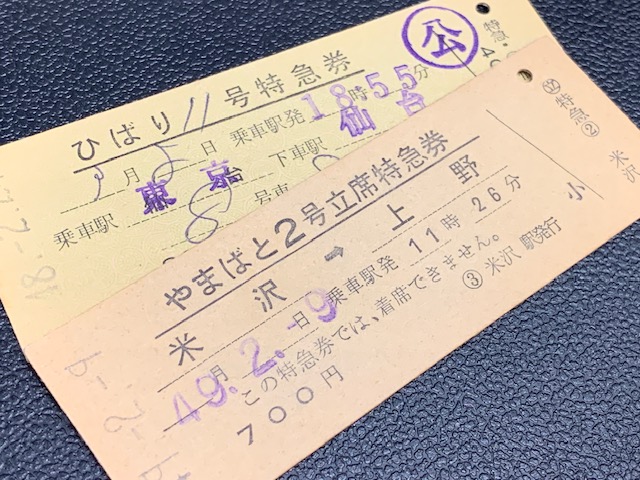 ひばり11号特急券
公
月 5 日 乗車駅発 18時55分
乗車駅 東京 下車駅 仙台
8 号車
特急
米沢
やまばと2号立席特急券
米沢 → 上野
49.2.-9
月 日 乗車駅発 11時26分
この特急券では、着席できません。
700円
③ 米沢 駅発行
特急②
小